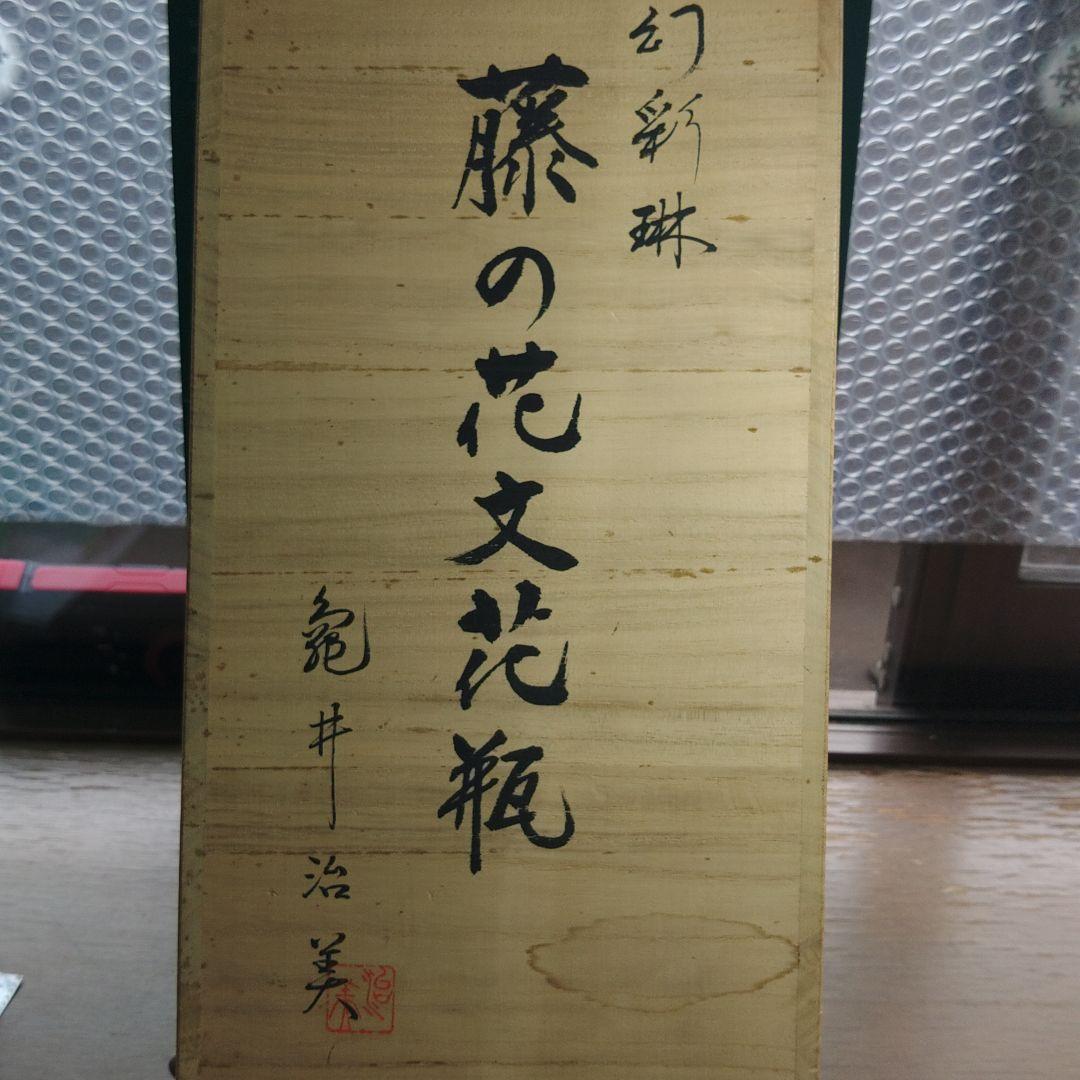 幻彩琳
藤の花文花瓶
龜井治美
治美